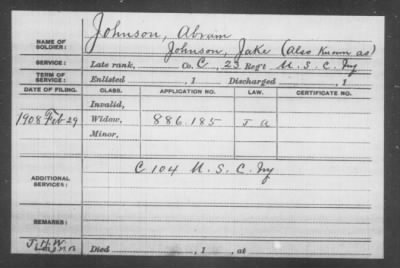 NAME OF SOLDIER: Johnson, Abram
Johnson, Jake (Also Known as)
SERVICE: Late rank, Co. C, 23 Reg't U.S.C. Inf
TERM OF SERVICE: Enlisted , 1 Discharged , 1
DATE OF FILING. CLASS. APPLICATION NO. LAW. CERTIFICATE NO.
Invalid,
1908 Feb 29 Widow, 886.185 J a
Minor,
ADDITIONAL SERVICES: C 104 U.S.C. Inf
REMARKS:
J.H.W.
Died , 1 , at